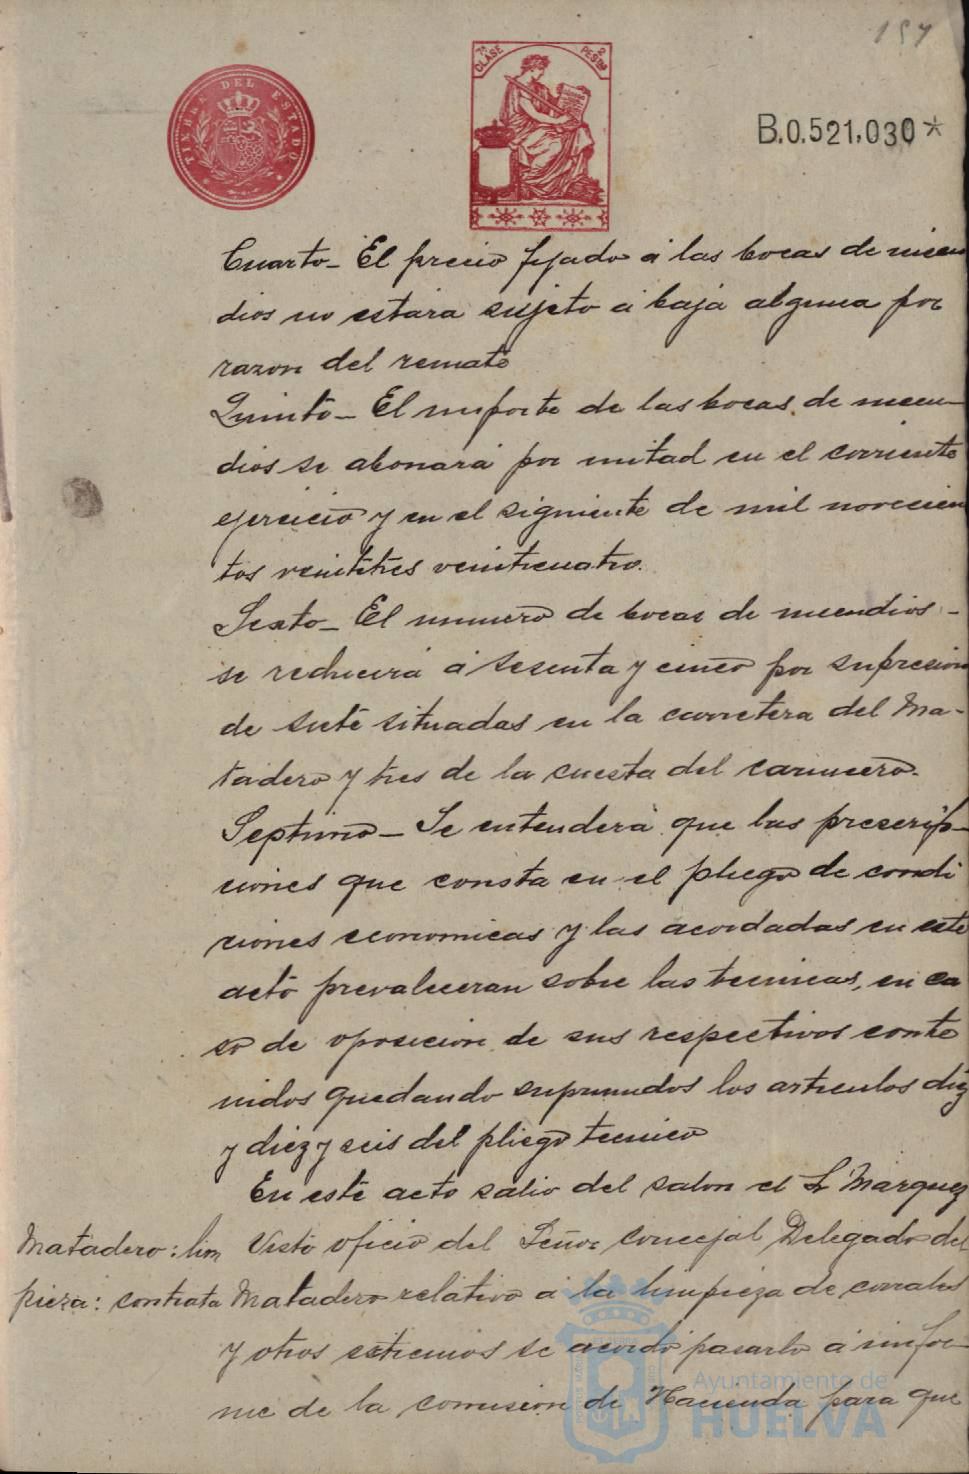 157
TIMBRE DEL ESTADO
7ª CLASE
2 PESTAS
B.0.521.030*
Cuarto_ El precio fijado á las bocas de incen
dios no estará sujeto á baja alguna por
razon del remate
Quinto_ El importe de las bocas de incen-
dios se abonará por mitad en el corriente
ejercicio y en el siguiente de mil novecien
tos veintitres veinticuatro.
Sexto_ El numero de bocas de incendios -
se reducirá á sesenta y cinco por supresion
de siete situadas en la carretera del Ma-
tadero y tres de la cuesta del carnicero.
Septimo_ Se entenderá que las prescrip-
ciones que consta en el pliego de condi
ciones economicas y las acordadas en este
acto prevaleceran sobre las tecnicas, en ca
so de oposicion de sus respectivos conte
nidos quedando suprimidos los articulos diez
y diez y seis del pliego tecnico
En este acto salio del salon el Sr Marquez
Matadero: lim
pieza: contrata
Visto oficio del Señor concejal Delegado del
Matadero relativo á la limpieza de corrales
y otros extremos se acordó pasarlo á infor-
me de la comision de Hacienda para que
Ayuntamiento de
HUELVA